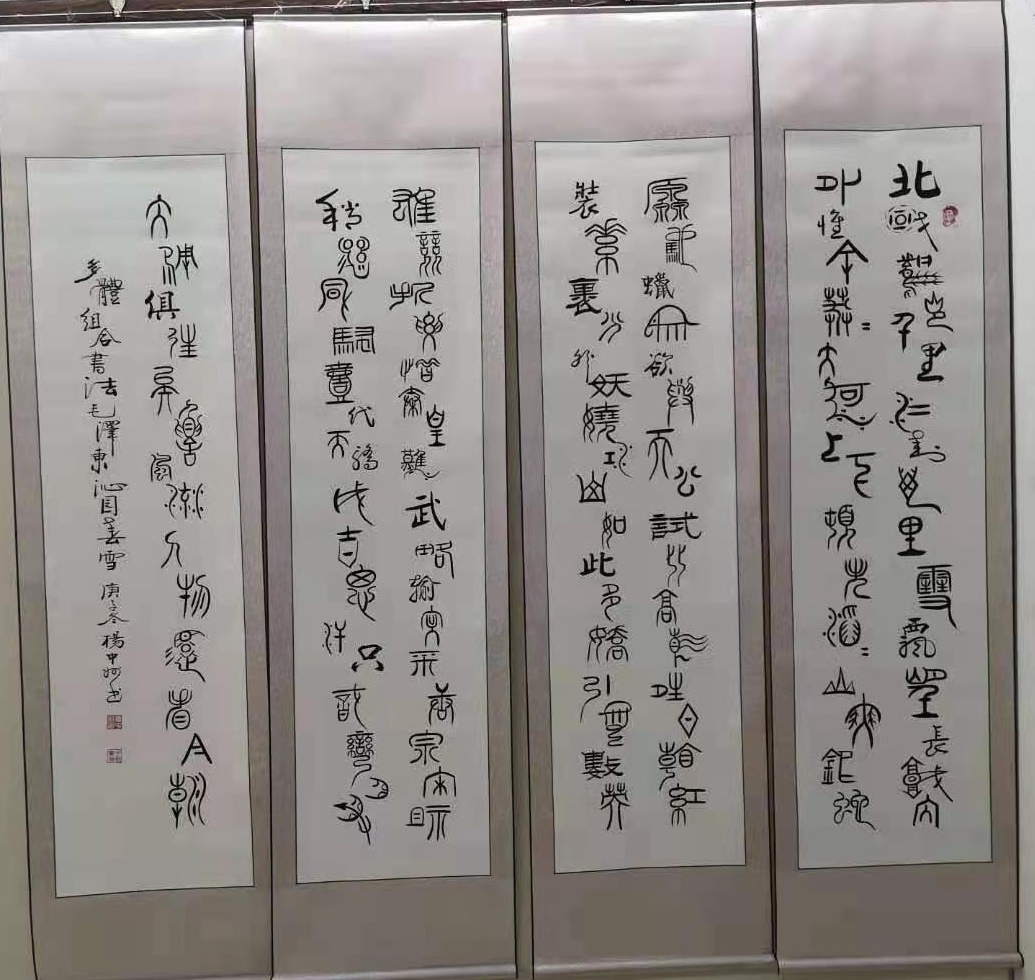 北國風光千里冰封萬里雪飄望長城内
外惟余莽〻大河上下頓失滔〻山舞銀蛇
原馳蠟象欲與天公試比高須晴日看紅
裝素裹分外妖嬈江山如此多嬌引無數英
雄競折腰惜秦皇漢武略輸文采唐宗宋祖
稍遜風騷壹代天驕成吉思汗只識彎弓射
大雕俱往矣數風流人物還看今朝
多體組合書法毛澤東沁園春雪 庚子冬楊中州書